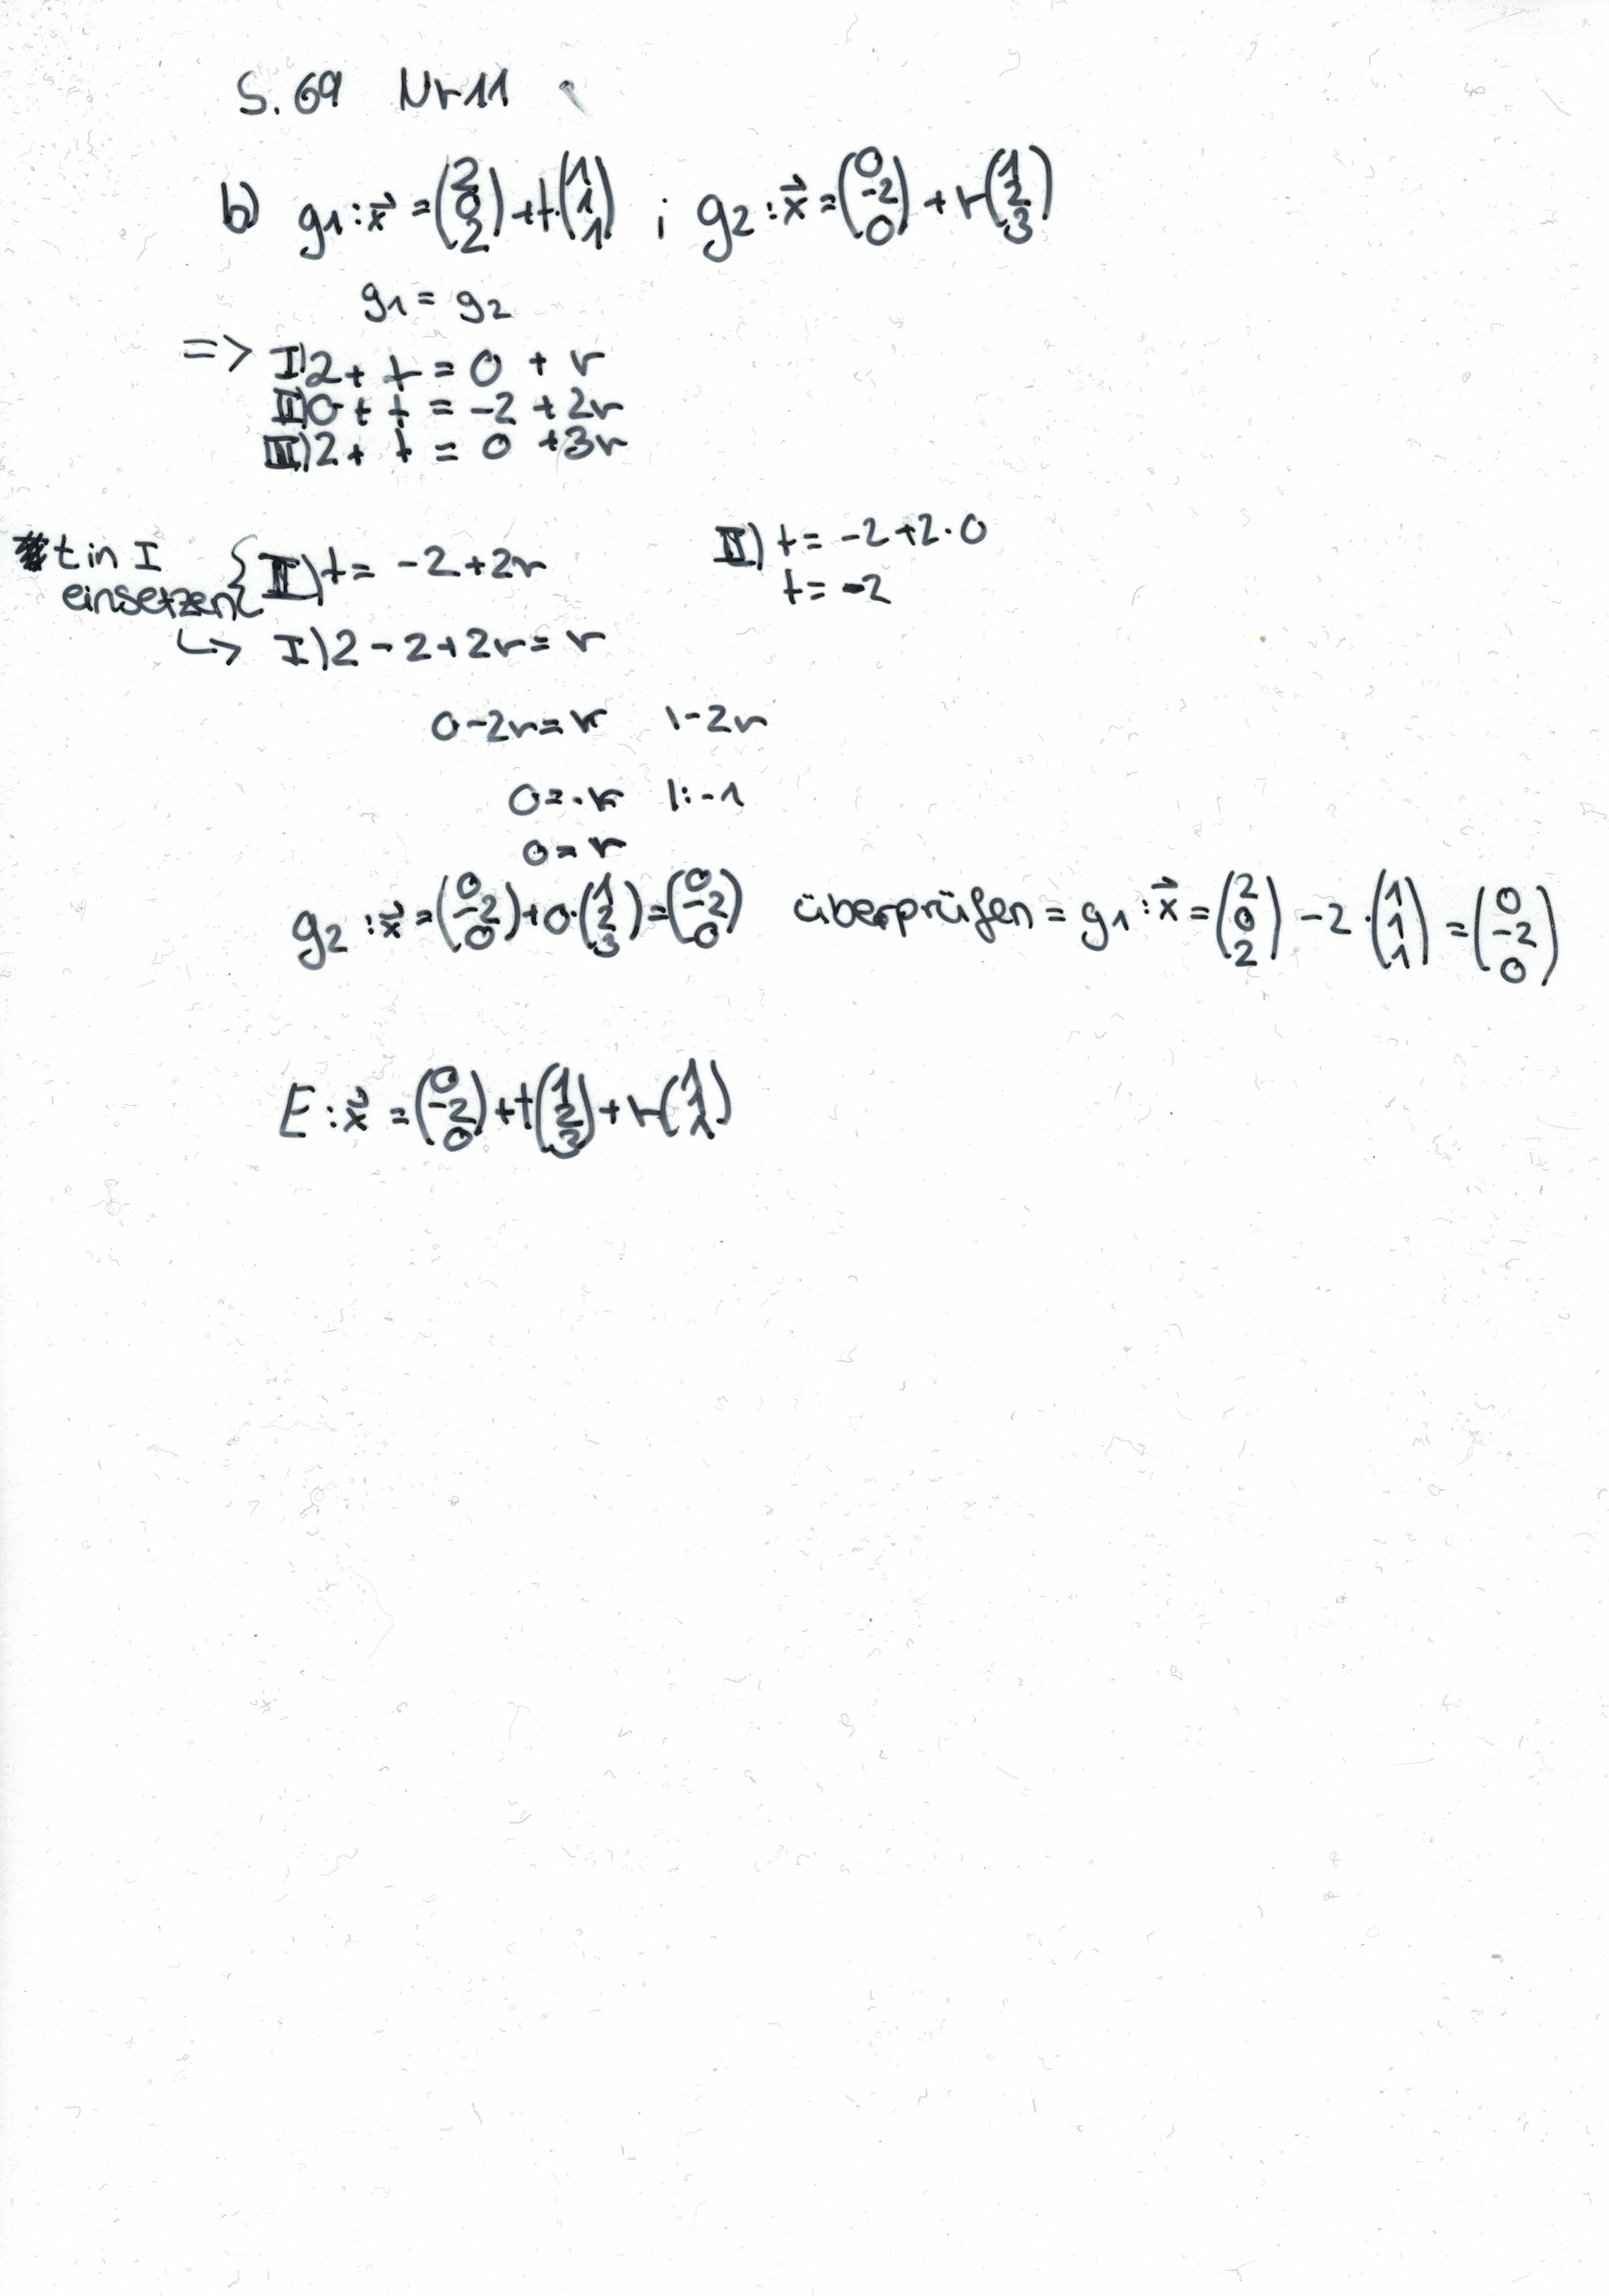 S. 69 Nr 11
b) g1 : x⃗ = (2 0 2) + t·(1 1 1) ; g2 : x⃗ = (0 -2 0) + r(1 2 3)
g1 = g2
=> I) 2 + t = 0 + r
II) 0 + t = -2 + 2r
III) 2 + t = 0 + 3r
t in I einsetzen { II) t = -2 + 2r
↳ I) 2 - 2 + 2r = r
0 - 2r = r | -2r
0 = -r | : -1
0 = r
II) t = -2 + 2·0
t = -2
g2 : x⃗ = (0 -2 0) + 0·(1 2 3) = (0 -2 0) überprüfen = g1 : x⃗ = (2 0 2) - 2·(1 1 1) = (0 -2 0)
E : x⃗ = (0 -2 0) + t(1 2 3) + r(1 1 1)